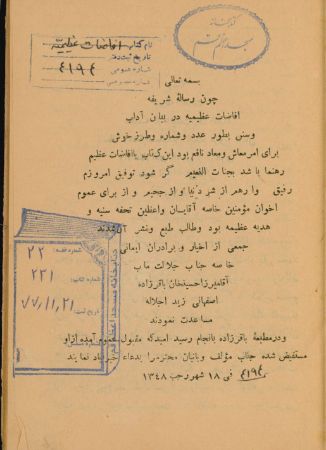 کتابخانه
مسجد اعظم قم
نام کتاب افاضات عظیمیه
تاریخ ثبت دفتر
شماره عمومی ۴۱۹۴
بسمه تعالی
چون رساله شریفه
افاضات عظیمیه در بیان آداب
وسنن بطور عدد وشماره وطرز خوش
برای امر معاش ومعاد نافع بود این کتاب با افاضات عظیم
رهنما باشد بجنات النعیم گر شود توفیق امروزم
رفیق وا رهم از شر دنیا و از جحیم و از برای عموم
اخوان مؤمنین خاصه آقایان واعظین تحفه سنیه و
هدیه عظیمه بود وطالب طبع ونشر آن شدند
جمعی از اخیار و برادران ایمانی
خاصه جناب جلالت مآب
آقامیرزا حسینخان باقرزاده
اصفهانی زید اجلاله
مساعدت نمودند
ودر مطبعهٔ باقرزاده بانجام رسید امید که مقبول عموم آمده از او
مستفیض شده جناب مؤلف وبانیان محترم را بدعاء خیر یاد نمایند
۴۱۹۴ فی ۱۸ شهر رجب ۱۳۴۸
کتابخانه مسجد اعظم قم
شماره قفسه: ۲۲
شماره کتاب: ۲۳۱
تاریخ ثبت: ۷۷،۱۱،۲۱